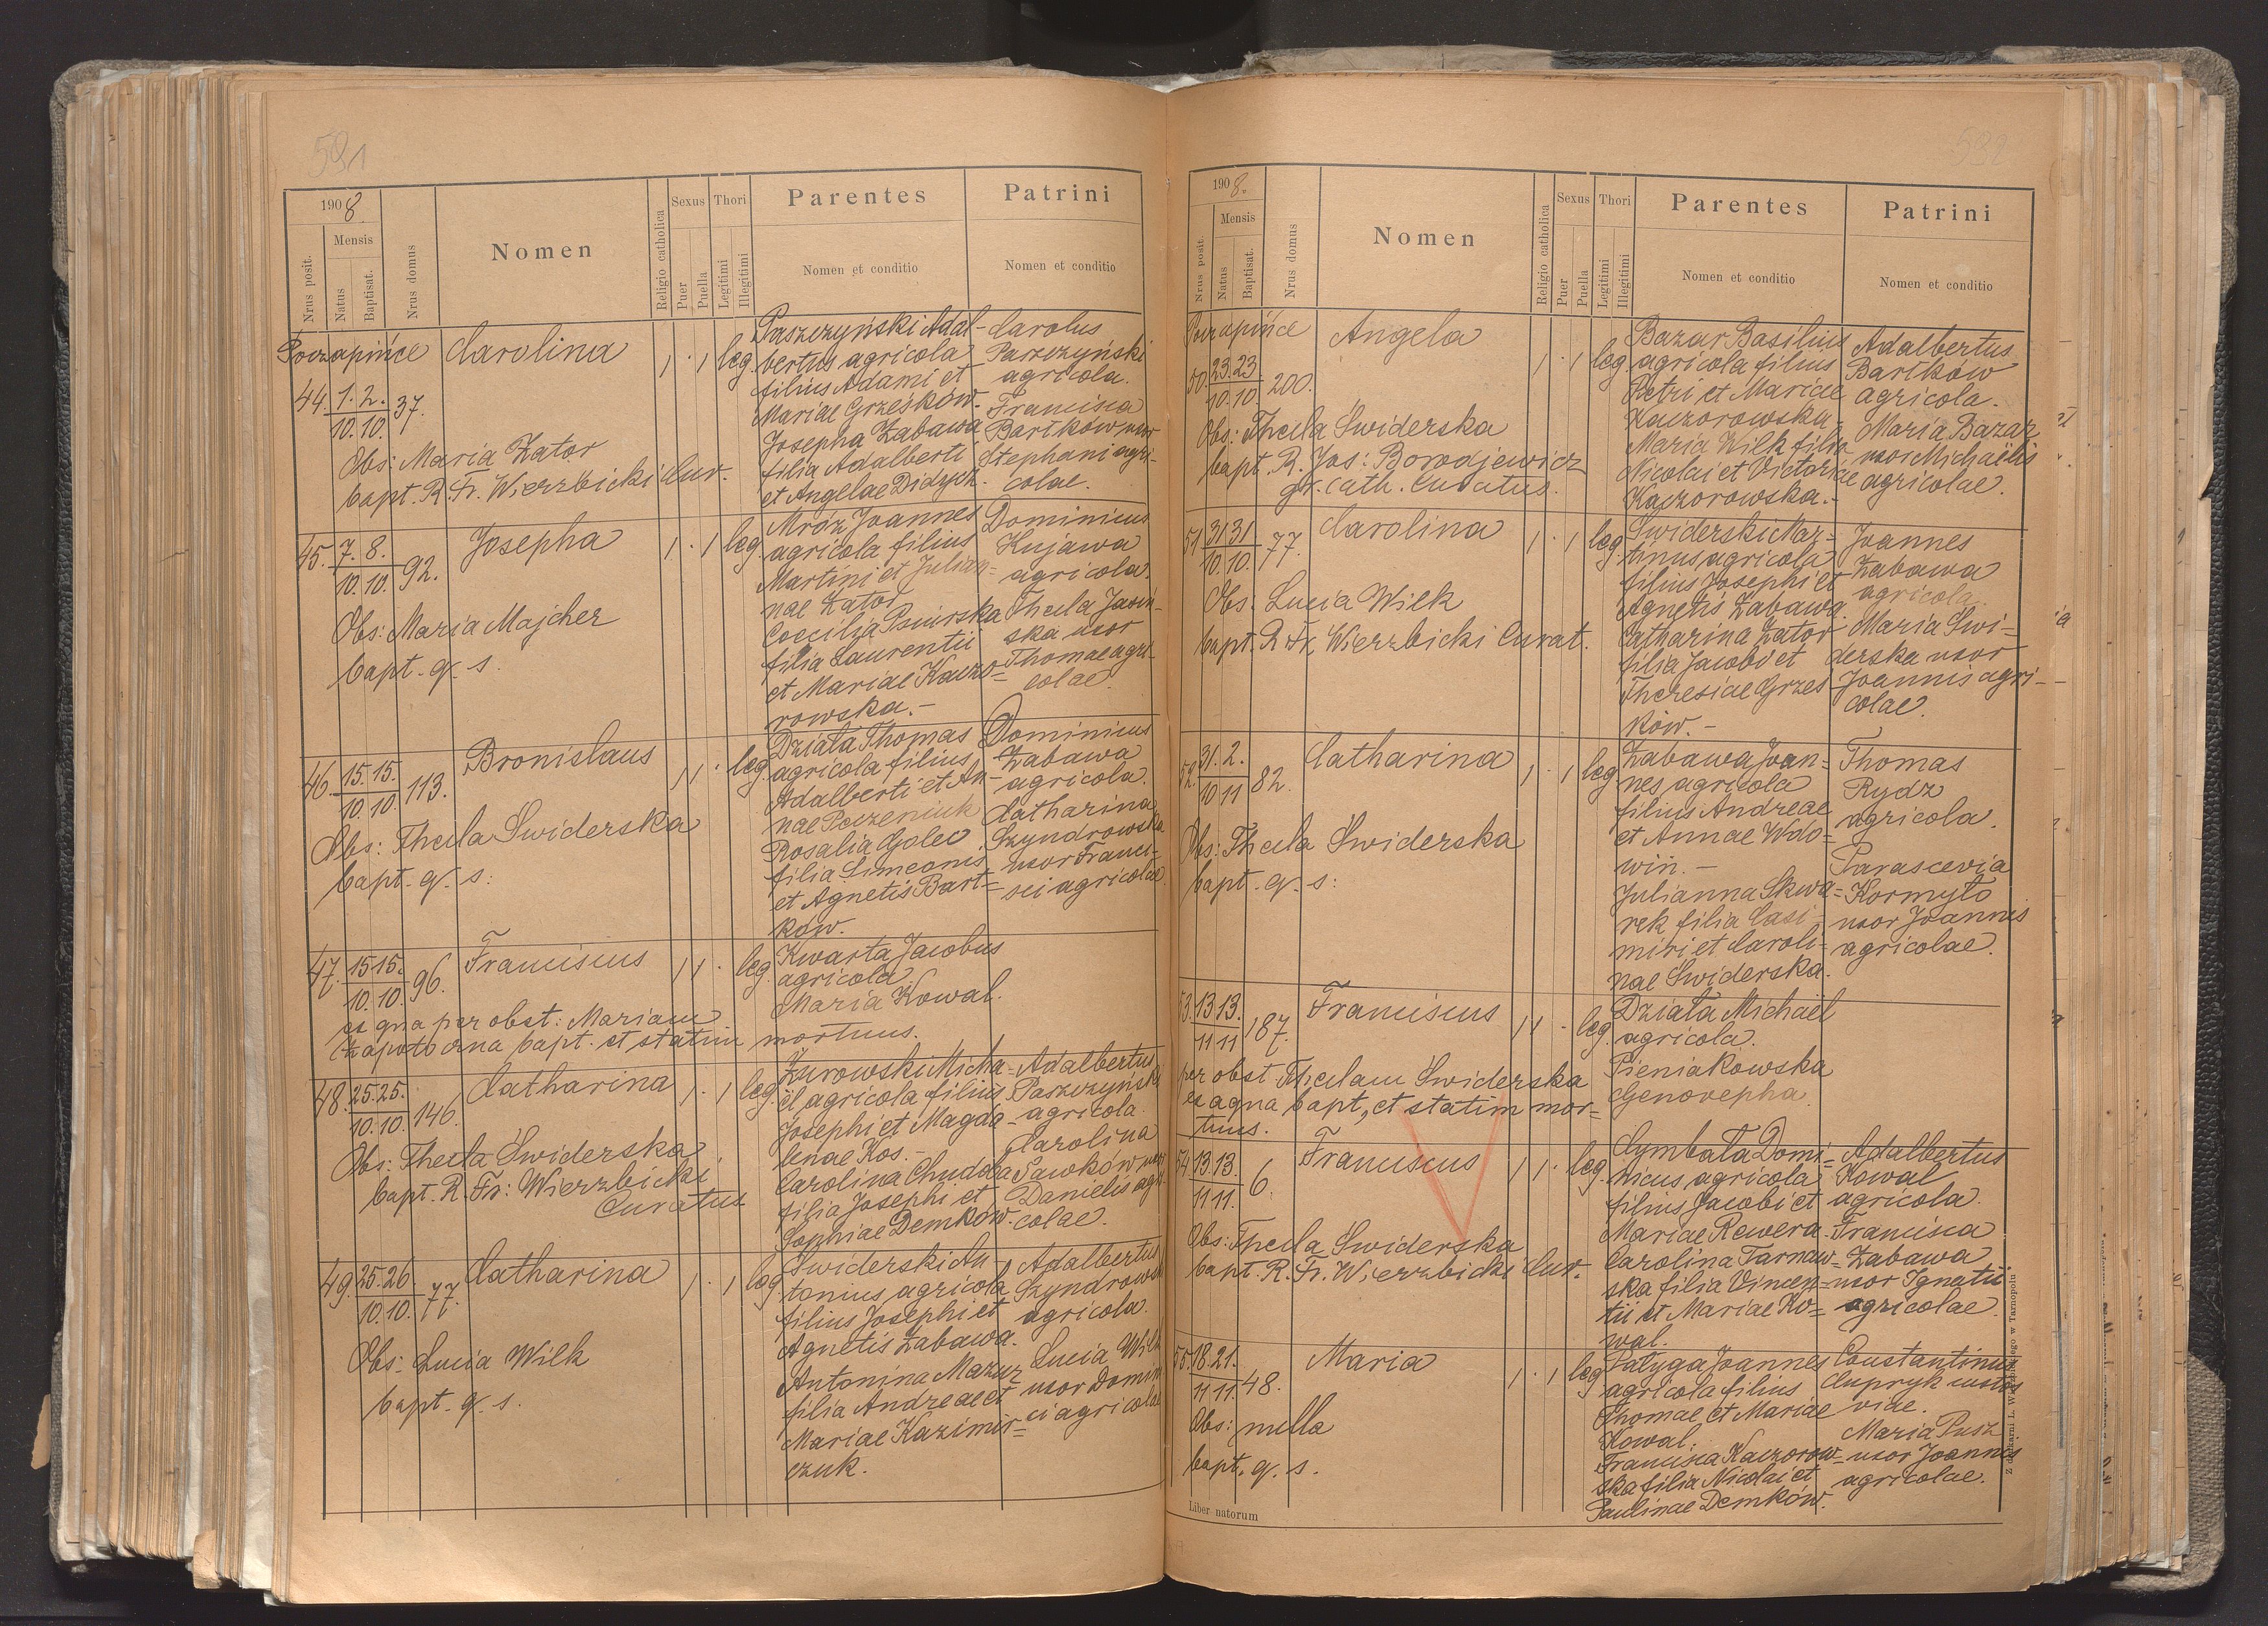 591
1908
Nrus posit.
Mensis
Natus
Baptisat.
Nrus domus
Nomen
Religio catholica
Sexus
Puer
Puella
Thori
Legitimi
Illegitimi
Parentes
Nomen et conditio
Patrini
Nomen et conditio
Poczapińce
44. 1. 2. 37.
10. 10.
Carolina
1 · 1 leg.
Obs: Maria Zator
bapt. R. Fr. Wierzbicki Cur.
Paszczyński Adal-
bertus agricola
filius Adami et
Mariae Grześków.
Josepha Zabawa
filia Adalberti
et Angelae Didych.
Carolus
Paszczyński
agricola.
Francisca
Bartków uxor
Stephani agri-
colae.
45. 7. 8. 92.
10. 10.
Josepha
1 · 1 leg.
Obs: Maria Majcher
bapt. q. s.
Mróz Joannes
agricola filius
Martini et Julian=
nae Zator
Coecilia Psiurska
filia Laurentii
et Mariae Kaczo=
rowska.-
Dominicus
Kujawa
agricola.
Thecla Jasiń-
ska uxor
Thomae agri-
colae.
46. 15. 15. 113.
10. 10.
Bronislaus
1 1 · leg.
Obs: Thecla Świderska
bapt. q. s:
Działa Thomas
agricola filius
Adalberti et An-
nae Poczeniuk
Rosalia Golec
filia Simeonis
et Agnetis Bart=
ków.
Dominicus
Zabawa
agricola.
Catharina
Szyndrowska
uxor Franci-
sci agricolae.
47. 15 15. 96.
10. 10.
Franciscus
1 1 · leg.
ex qua per obst: Mariam
Czapoto ana bapt. et statim mortuus.
Kwarta Jacobus
agricola
Maria Kowal.
48. 25. 25. 146.
10. 10.
Catharina
1 · 1 leg.
Obs: Thecla Świderska
bapt. R. Fr: Wierzbicki
Curatus
Żurowski Micha-
el agricola filius
Josephi et Magda-
lenae Kos.-
Carolina Chudoba
filia Josephi et
Sophiae Demków.
Adalbertus
Paszczyński
agricola
Carolina
Sawków uxor
Danielis agri
colae.
49. 25. 26. 77.
10. 10.
Catharina
1 · 1 leg.
Obs: Lucia Wilk
bapt. q. s.
Świderski An
tonius agricola
filius Josephi et
Agnetis Zabawa.
Antonina Mazur
filia Andreae et
Mariae Kazimir=
czuk.
Adalbertus
Szyndrowski
agricola.
Lucia Wilk
uxor Domini
ci agricolae
592
1908.
Nrus posit.
Mensis
Natus
Baptisat.
Nrus domus
Nomen
Religio catholica
Sexus
Puer
Puella
Thori
Legitimi
Illegitimi
Parentes
Nomen et conditio
Patrini
Nomen et conditio
Poczapińce
50. 23. 23. 200.
10. 10.
Angela
1 · 1 leg.
Obs: Thecla Świderska
bapt. R. Jos: Borodjewicz
gr. cath. Curatus.
Bazar Basilius
agricola filius
Petri et Mariae
Kaczorowska-
Maria Wilk filia
Nicolai et Victoriae
Kaczorowska.-
Adalbertus
Bartków
agricola.
Maria Bazar
uxor Michaelis
agricolae.
51 31 31 77.
10. 10.
Carolina
1 · 1 leg.
Obs. Lucia Wilk
bapt. R Fr. Wierzbicki Curat.
Świderski Mar=
tinus agricola
filius Josephi et
Agnetis Zabawa.
Catharina Zator
filia Jacobi et
Theresiae Grześ
ków.-
Joannes
Zabawa
agricola.
Maria Świ=
derska uxor
Joannis agri-
colae.
52. 31. 2. 82.
10 11
Catharina
1 · 1 leg.
Obs: Thecla Świderska
bapt. q. s:
Zabawa Joan=
nes agricola
filius Andreae
et Annae Wdo=
win.-
Julianna Skwa=
rek filia Casi-
miri et Caroli=
nae Świderska.
Thomas
Rydz
agricola.
Parascevia
Kormyto
uxor Joannis
agricolae.
53. 13 13. 187.
11 11
Franciscus
1 1 · leg.
per obst. Theclam Świderska
ex aqua bapt, et statim mor=
tuus.
Działa Michaël
agricola.
Pieniakowska
Genovepha.
54 13. 13. 6.
11 11.
Franciscus
1 1 · leg.
Obs: Thecla Świderska
bapt. R. Fr. Wierzbicki Cur.
Cymbała Domi=
nicus agricola
filius Jacobi et
Mariae Rewera.
Carolina Tarnaw=
ska filia Vincen=
tii et Mariae Ko=
wal.
Adalbertus
Kowal
agricola.
Francisca
Zabawa
uxor Ignatii
agricolae.
55. 18. 21. 48.
11 11.
Maria
1 · 1 leg.
Obs: nulla
bapt. q. s.
Pałyga Joannes
agricola filius
Thomae et Mariae
Kowal.
Francisca Kaczorow-
ska filia Nicolai et
Paulinae Demków.
Constantinus
Cupryk custos
viae.
Maria Pusz
uxor Joannis
agricolae.
Liber natorum